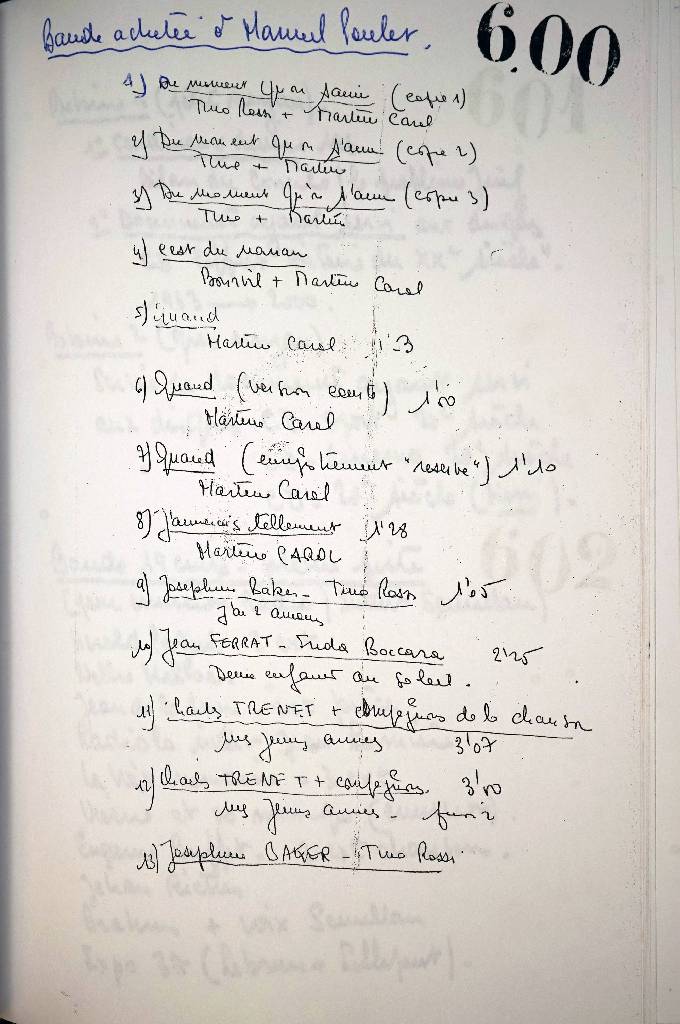 Bande achetée à Marcel Poulet.
600
1) Du moment qu'on s'aime (copie 1)
Tino Rossi + Martine Carol
2) Du moment qu'on s'aime (copie 2)
Tino + Martine
3) Du moment qu'on s'aime (copie 3)
Tino + Martine
4) c'est du nanan
Bourvil + Martine Carol
5) Quand
Martine Carol 1'-3
6) Quand (version courte) 1'00
Martine Carol
7) Quand (enregistrement "reserve") 1'10
Martine Carol
8) J'aimerais tellement 1'28
Martine CAROL
9) Josephine Baker - Tino Rossi 1'05
j'ai 2 amours
10) Jean FERRAT - Frida Boccara 2'25
Deux enfants au soleil.
11) Charles TRENET + compagnons de la chanson
mes jeunes années 3'07
12) Charles TRENET + compagnons. 3'00
mes jeunes années -
13) Josephine BAKER - Tino Rossi